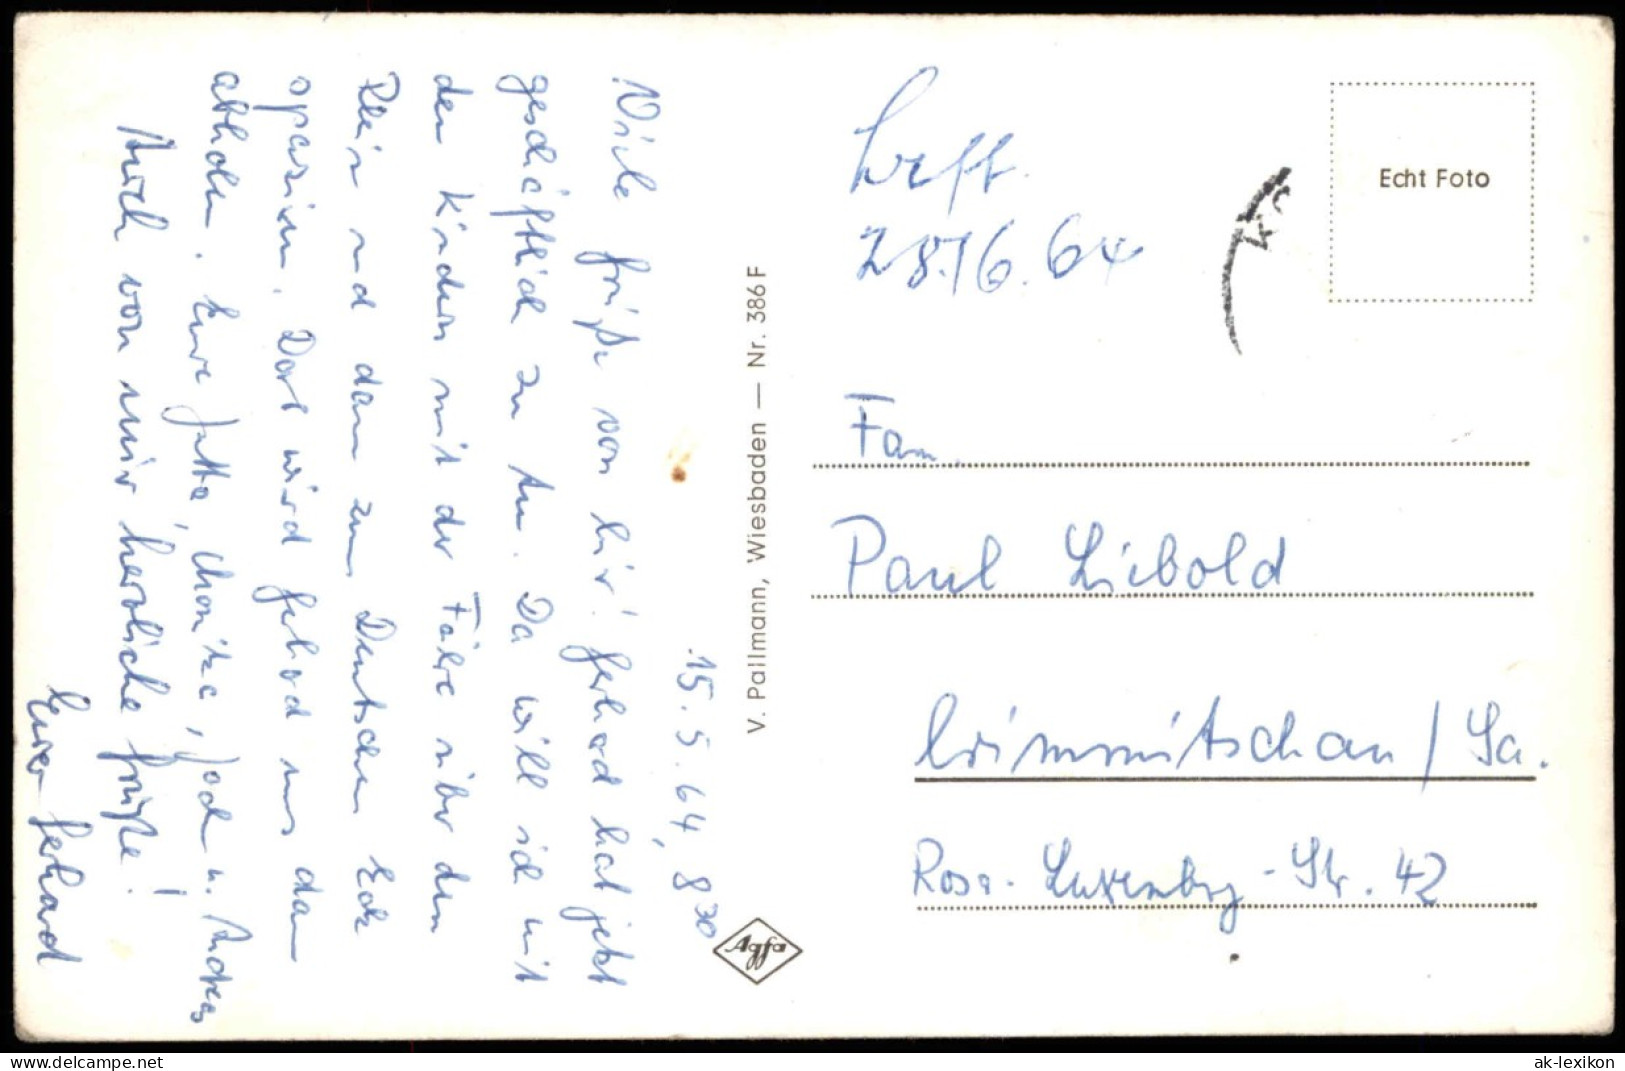 15.5.64, 8³⁰
Viele Grüße von hier! Gerhard hat jetzt
geschäftlich zu tun. Da will ich mit
den Kindern mit der Fähre über den
Rhein und dann zum Deutschen Eck
spazieren. Dort wird Gerhard uns dann
abholen. Eure Jutta, Jochen u. Andreas
Auch von mir herzliche Grüße!
Euer Gerhard
V. Pallmann, Wiesbaden — Nr. 386 F
Agfa
28.6.64
Echt Foto
Fam.
Paul Liebold
Crimmitschau / Sa.
Rosa-Luxemburg-Str. 42
delcampe.net
ak-lexikon